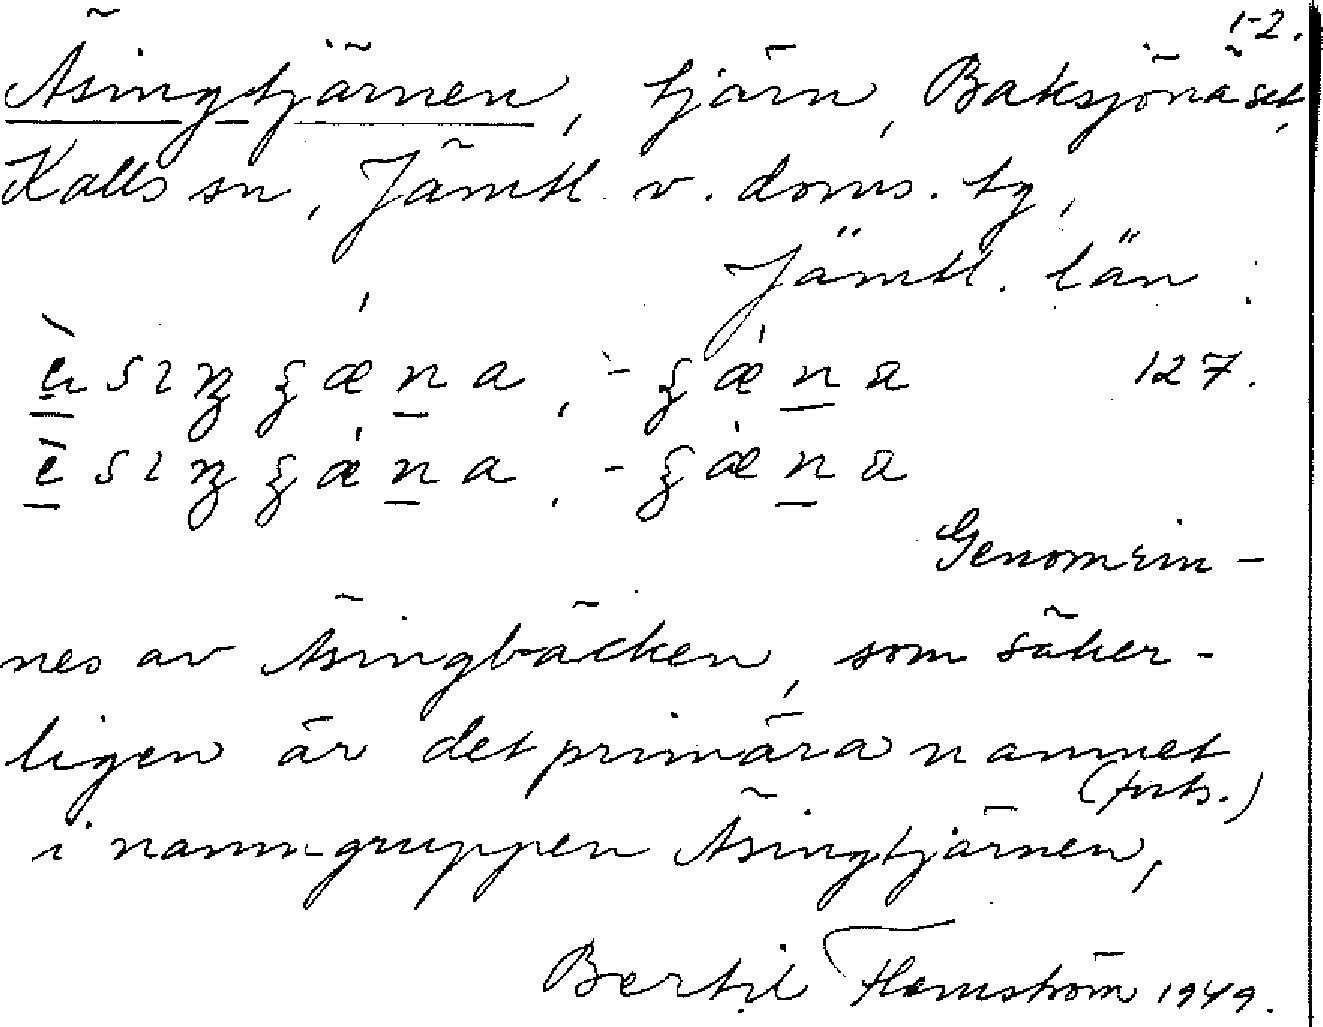 1-2.
Äsingtjärnen, tjärn, Baksjönäset,
Kalls sn, Jämtl. v. doms. tg,
Jämtl. län.
127.
Genomrin-
nes av Äsingbäcken, som säker-
ligen är det primära namnet
(forts.)
i namngruppen Äsingtjärnen,
Bertil Flemström 1949.